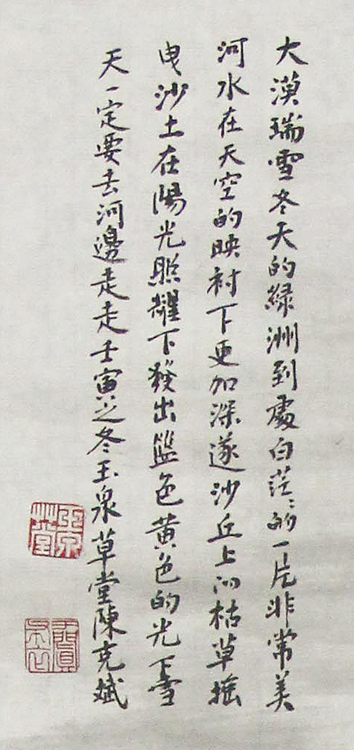 大漠瑞雪冬天的綠洲到處白茫茫的一片非常美
河水在天空的映衬下更加深邃沙丘上的枯草摇
曳沙土在陽光照耀下發出藍色黄色的光下雪
天一定要去河邊走走壬寅之冬玉泉草堂陳克斌